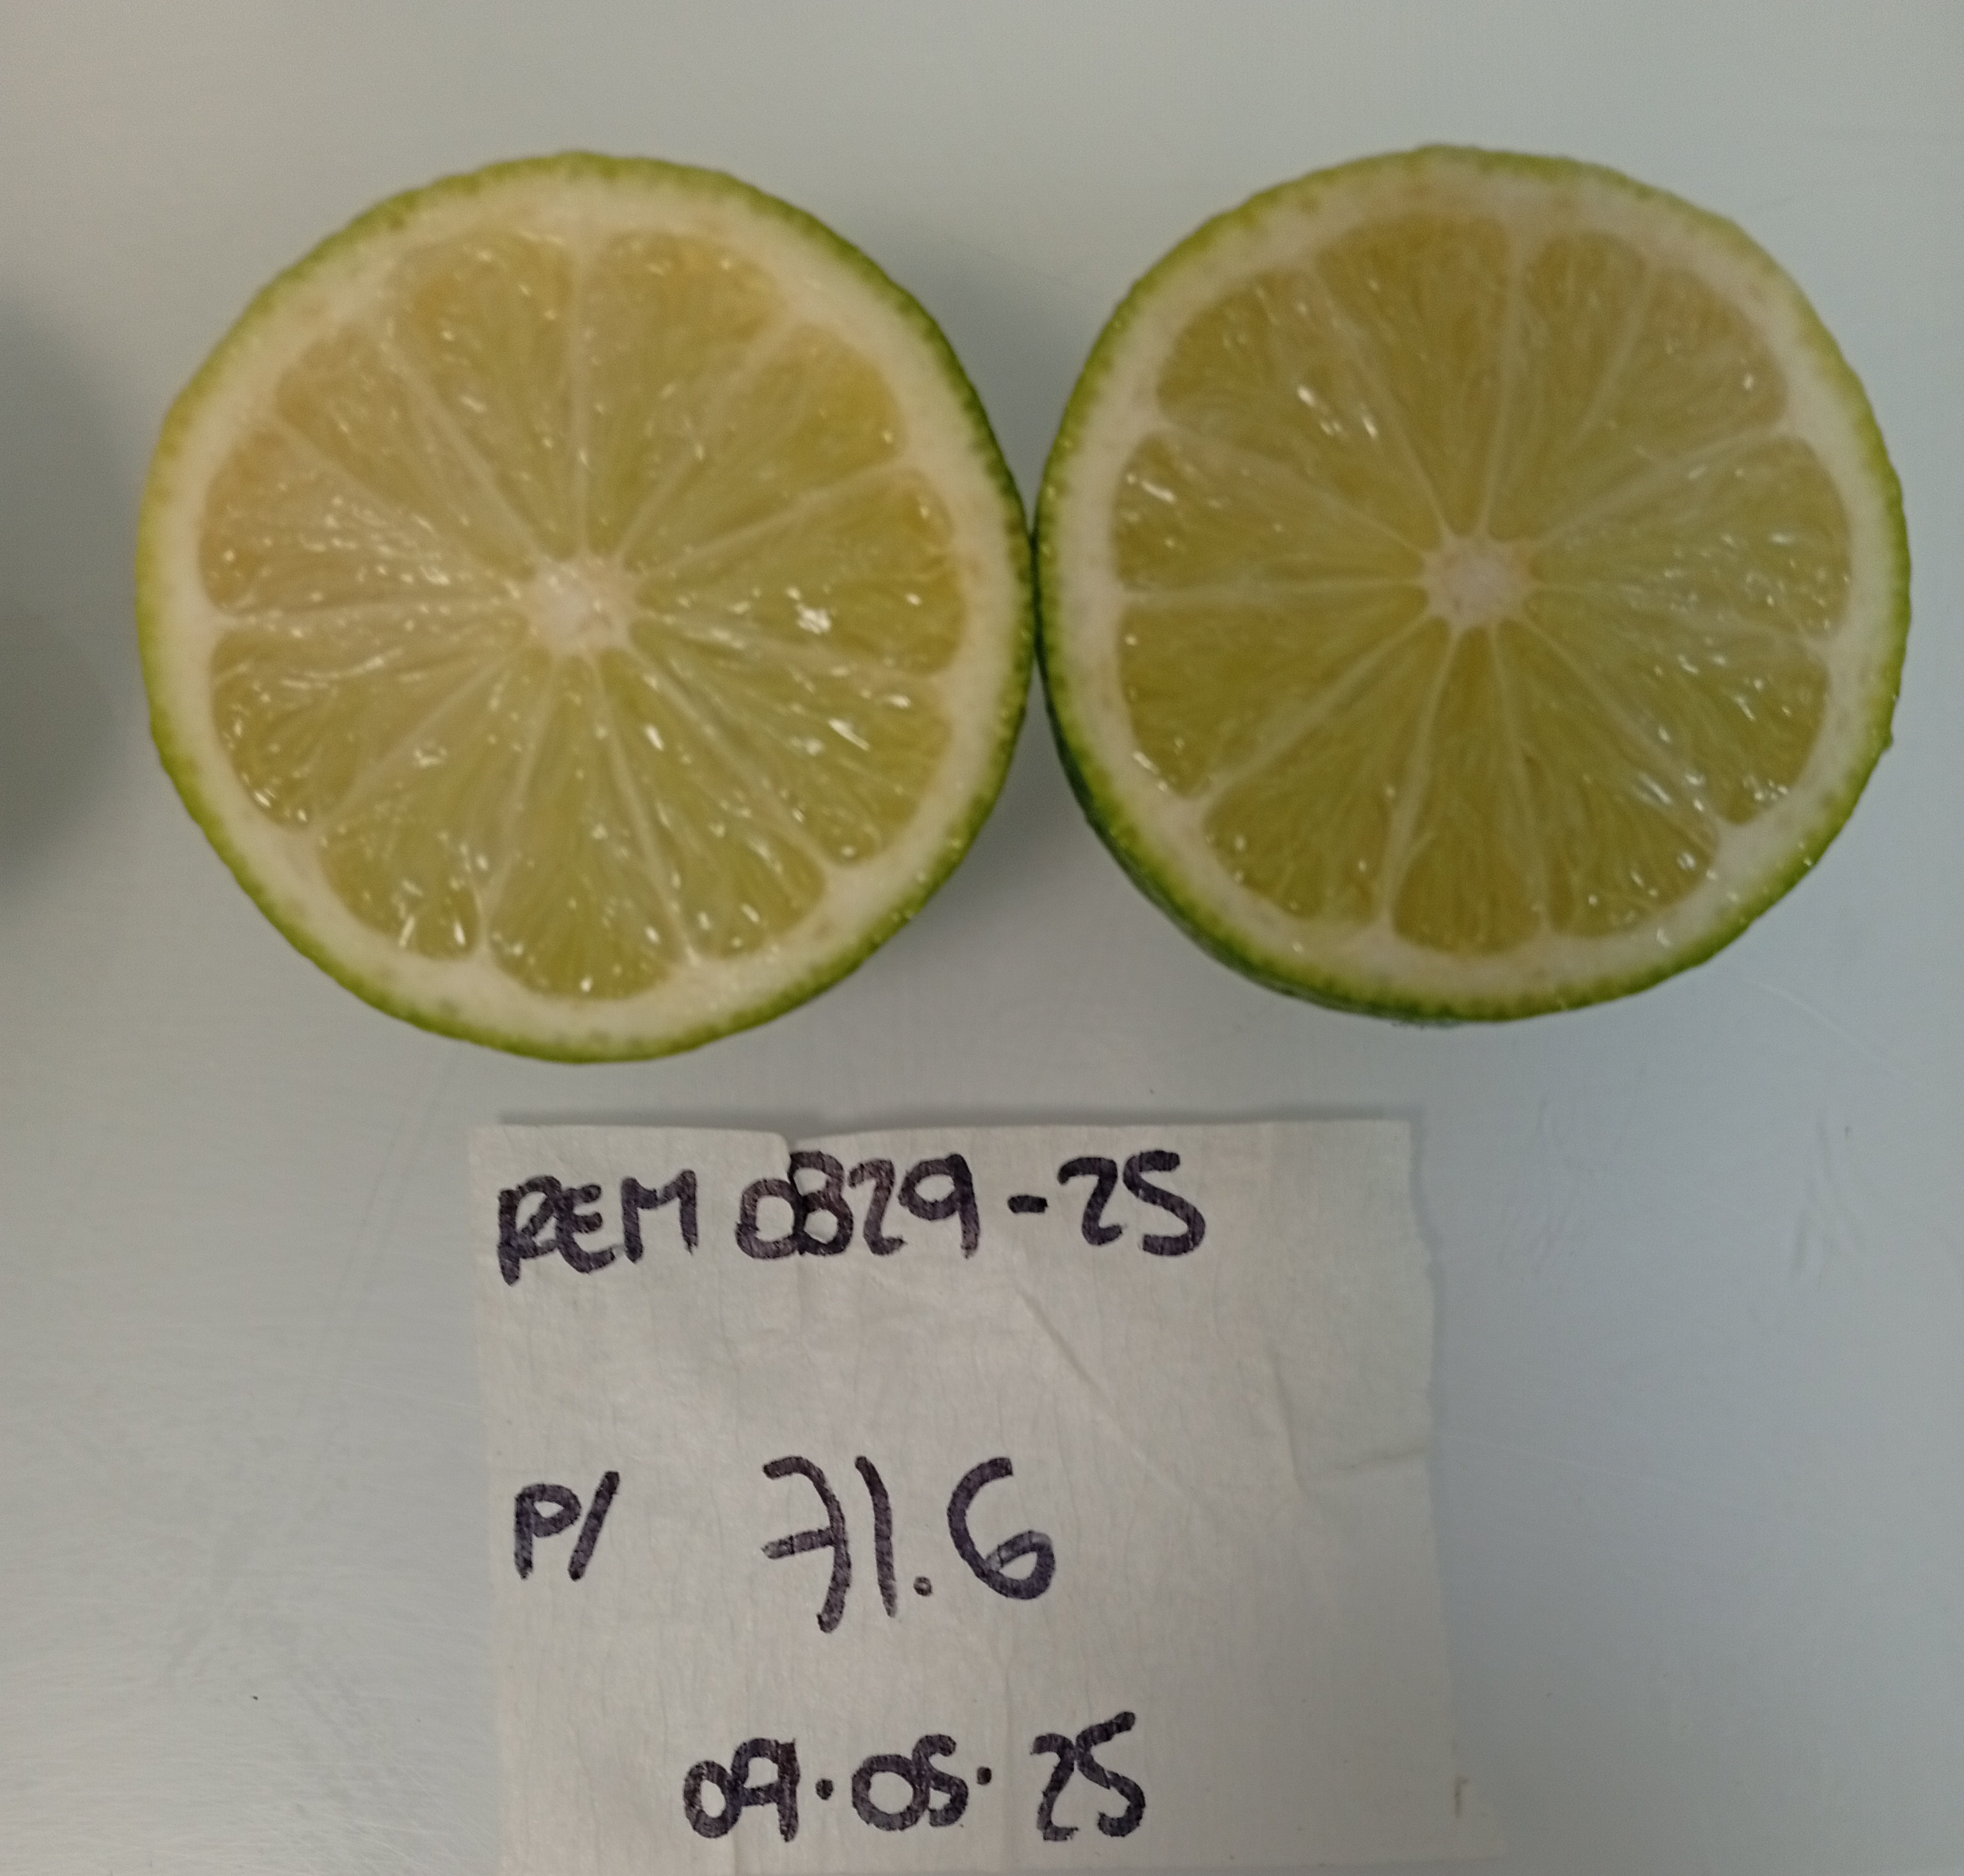 REM 0829-25
P/ 71.6
09.05.25